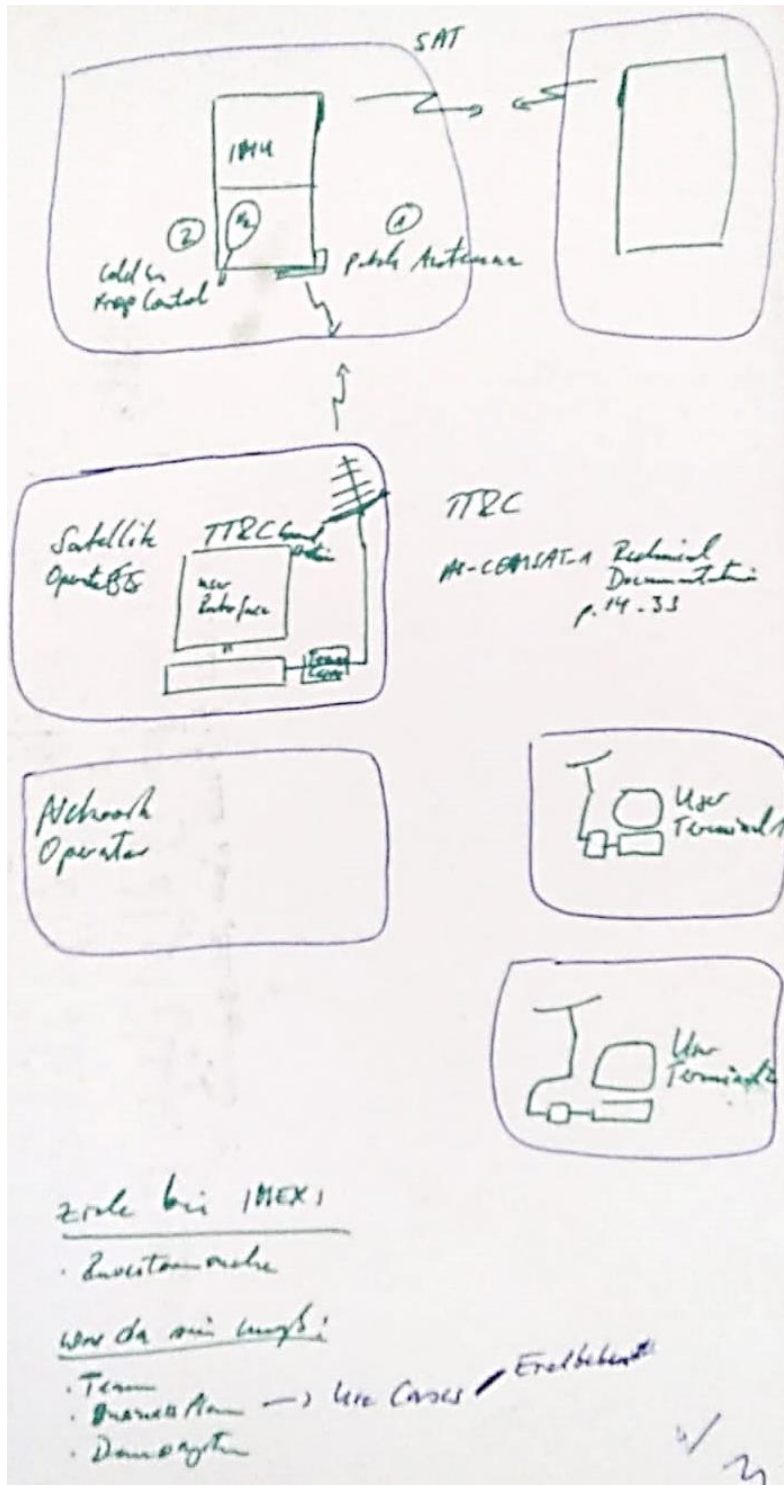 SAT
IMU
②
N₂
①
Cold Gas
Prop Control
Patch Antenna
Satellite
Operator
TT&C Ground
Station
User
Interface
TT&C
Technical
Documentation
p. 14-33
Network
Operator
User
Terminal 1
User
Terminal 2
Ziele bei
· Investorensuche
was da sein muß:
· Team
· Business Plan → Use Cases /
· Demosystem